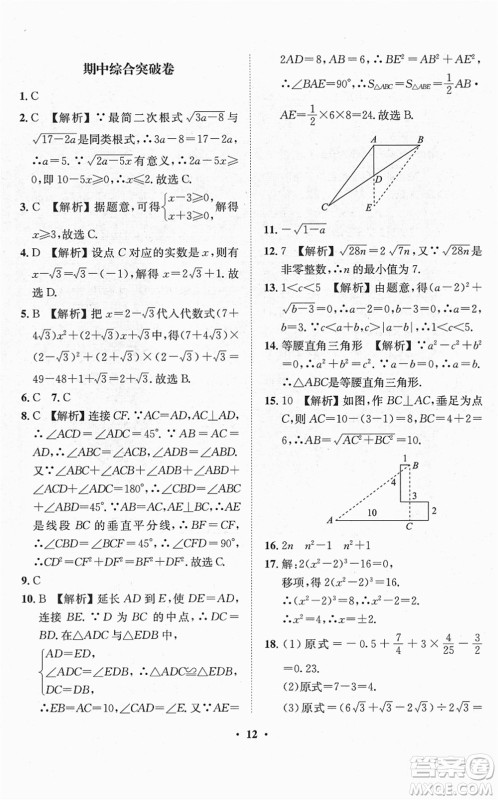 期中综合突破卷
1. C
2. C 【解析】∵最简二次根式√(3a-8)与
√(17-2a)是同类根式,∴3a-8=17-
2a,∴a=5.∵√(2a-5x)有意义,∴2a-5x≥
0,此时10-5x≥0,∴x≤2.故选C.
3. C 【解析】据题意,可得{x-3≥0, x+3≥0.∴
x≥3.故选C.
4. D 【解析】设点C对应的实数是x,则
有x-1=1-(√3-1),∴x=3-√3.故
选D.
5. B 【解析】把x=2-√3代入代数式(7+
4√3)x²+(2+√3)x+√3得(7+4√3)×
(2-√3)²+(2+√3)×(2-√3)+√3=
49-48+1+√3=2+√3.故选B.
6. C 7. C
8. C 【解析】连接CF.∵AC⊥AD,AC=AD,
∴∠ACD=∠ADC=45°.∵∠ABC=45°,
又∵∠BAC=∠CAD=90°,∴∠ACB=
∠ADB=45°,∴∠BCD=90°,∠ABC=
∠ACB,∴AB=AC,AF⊥BC,∴AF是
线段BC的垂直平分线,∴BF=CF,
∴∠CBD=∠BCF=∠CFD=90°,
∴CD²=CF²+DF²=BF²+DF².故选C.
9. C
10. B 【解析】延长AD到E,使DE=AD,
连接BE.∵D为BC的中点,∴DC=
BD.在△ADC与△EDB中,
{AD=ED,
∠ADC=∠EDB,∴△ADC≌△EDB,
DC=BD,
∴EB=AC=10,∠CAD=∠E.又∵AE=
2AD=8,AB=6,∴BE²=AB²+AE²,
∴∠BAE=90°,∴S△ABC=S△ABE=1/2AB·
AE=1/2×6×8=24.故选B.
A
B
D
C
E
11. -√(1-a)
12. 7 【解析】√28n=2√7n,又∵√28n是
非零整数,∴n的最小值为7.
13. 1<c<5 【解析】由题意,得(a-2)²+
√(b-3)=0,∴a=2,b=3.∵a,b,c是三
角形的三边,∴b+a>c>|a-b|,
∴1<c<5.
14. 等腰直角三角形 【解析】∵√(c²-a²-b²)+
|a-b|=0,∴a²+b²=c²且a=b,
∴△ABC是等腰直角三角形.
15. 10 【解析】如图,作BC⊥AC,垂足为点
C.∵AC=10-(3-1)=8,BC=4+2=
6,∴AB=√(AC²+BC²)=10.
1
B
4
3
10
2
A
C
16. 2n n²-1 n²+1
17. 解:2(x²-2)³-16=0,
移项,得2(x²-2)³=16,
∴(x²-2)³=8,∴x²-2=2,∴x=±2.
18. (1)原式=-0.5+7/4+3×(-3/4)=-1.
(2)原式=7-3=4.
(3)原式=(6√3-2√3/3+4√3)÷2√3=
12